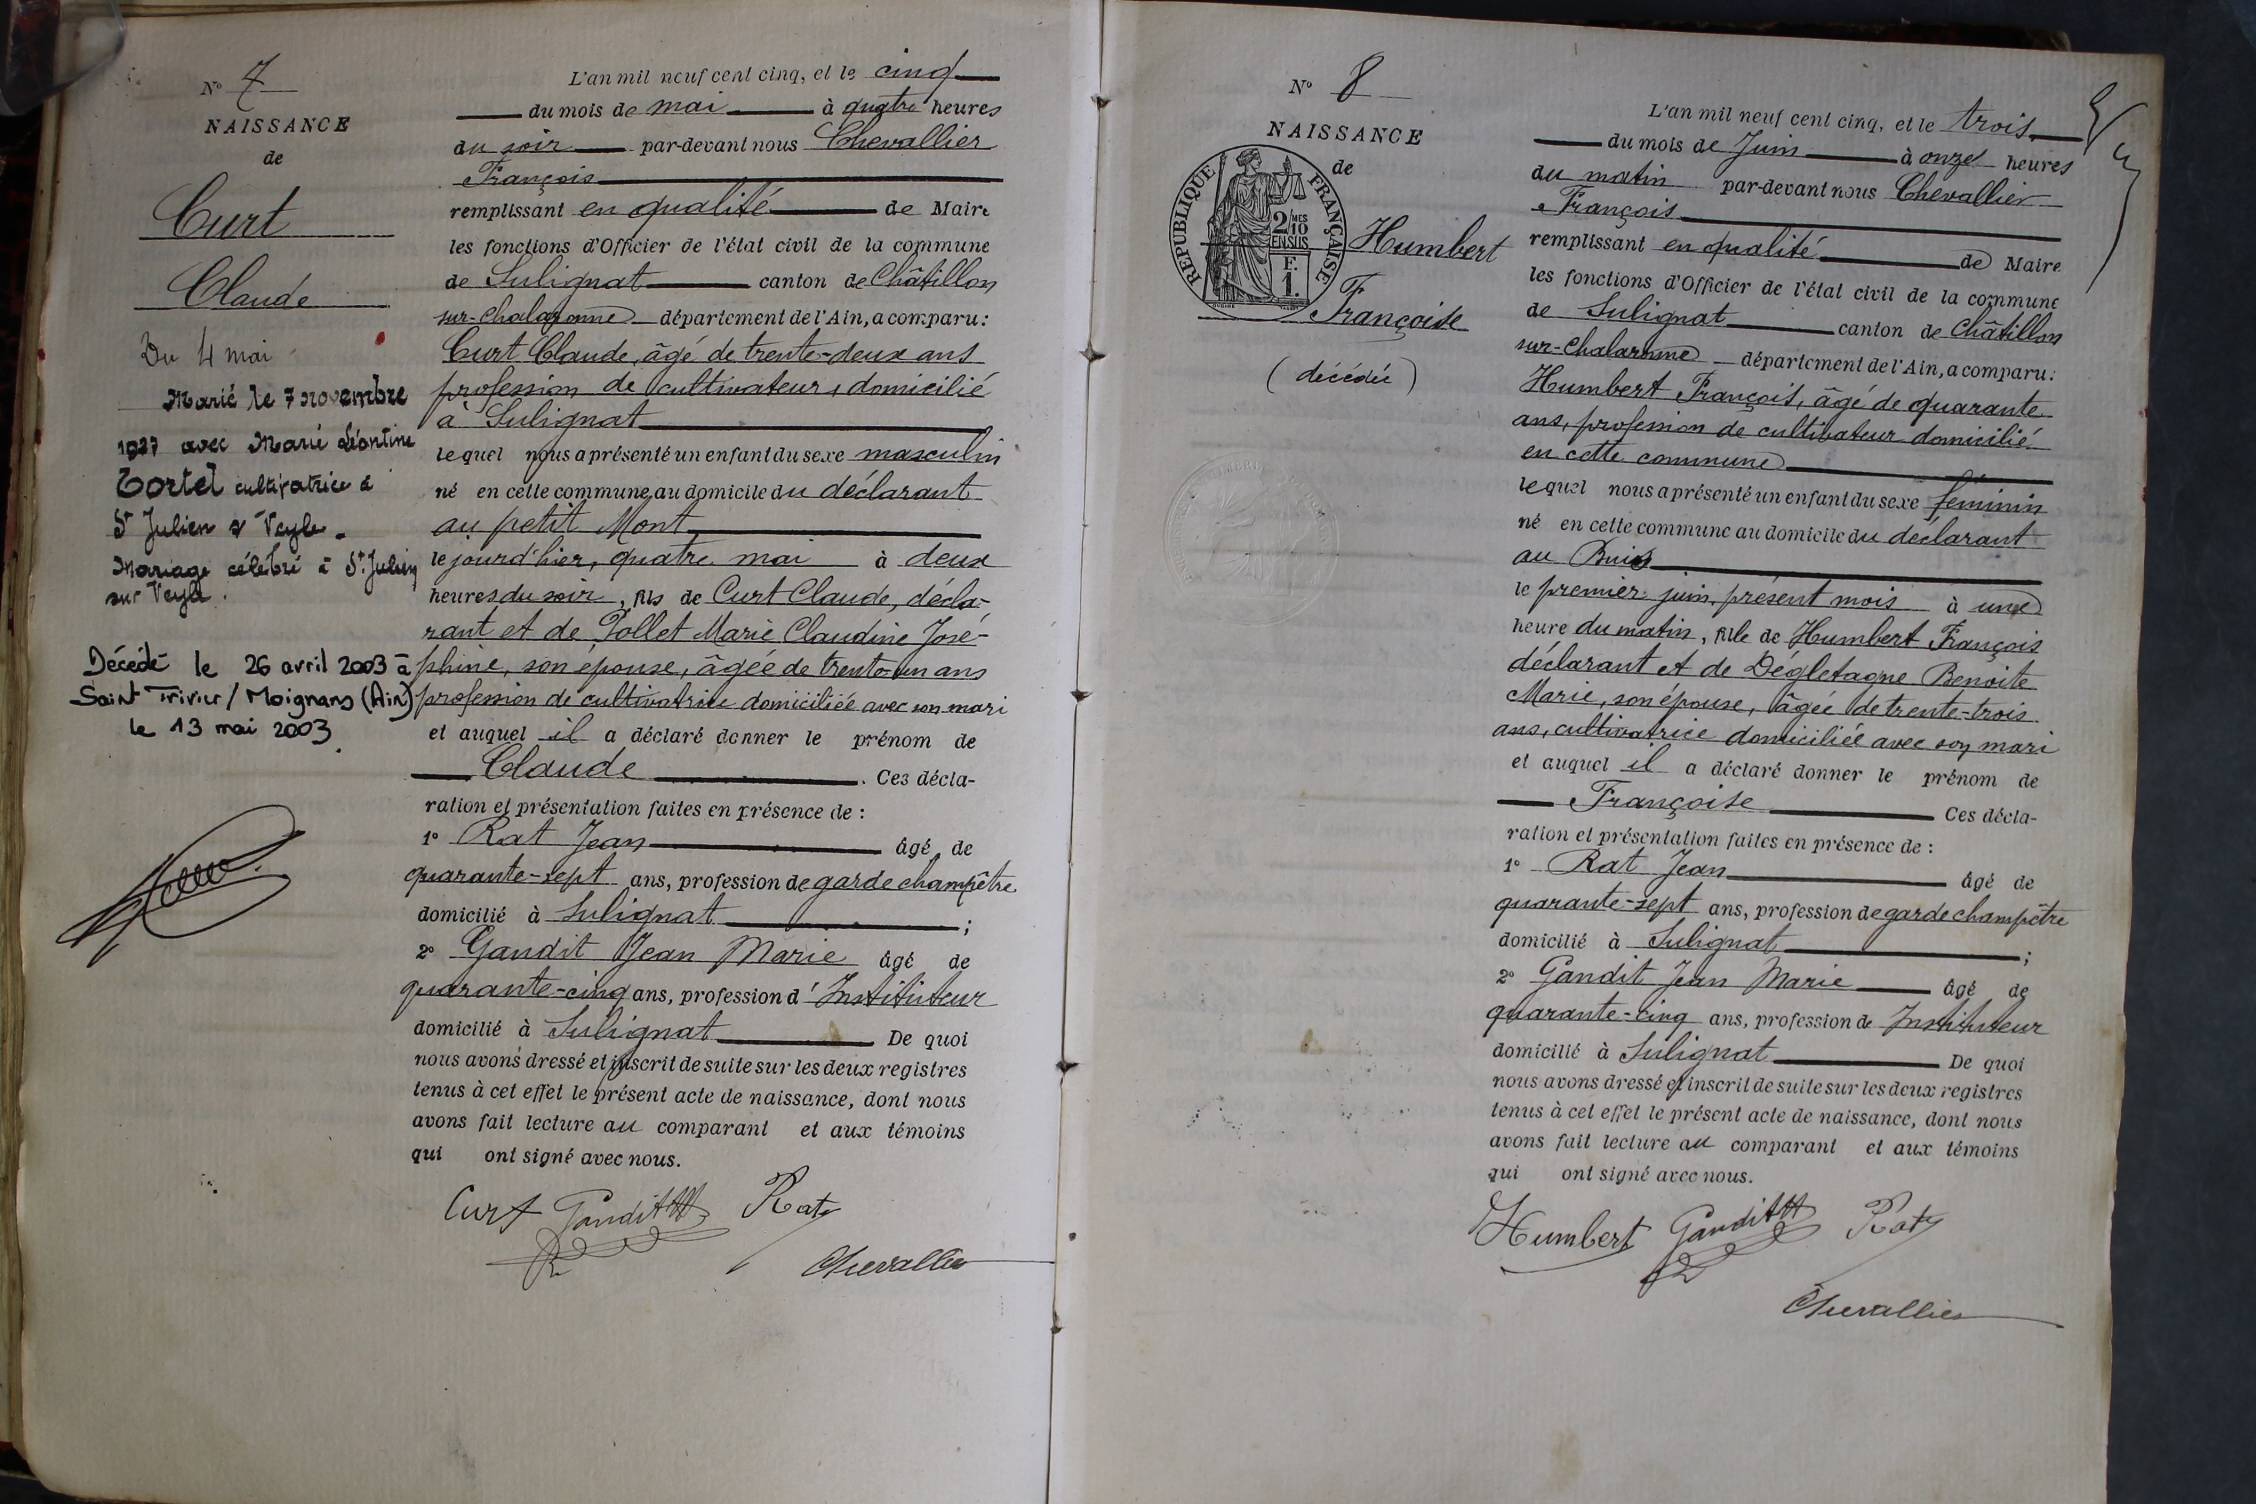 N° 7
NAISSANCE
de
Curt
Claude
Du 4 mai
Marié le 7 novembre
1927 avec Marie Léontine
Tortel cultivatrice à
St Julien s/ Veyle.
Mariage célébré à St. Julien
sur Veyle.
Décédé le 26 avril 2003 à
Saint Trivier / Moignans (Ain)
le 13 mai 2003.
L'an mil neuf cent cinq, et le cinq
du mois de mai à quatre heures
du soir par-devant nous Chevallier
François
remplissant en qualité de Maire
les fonctions d'Officier de l'état civil de la commune
de Sulignat canton de Châtillon
sur-Chalaronne département de l'Ain, a comparu:
Curt Claude, âgé de trente-deux ans
profession de cultivateur, domicilié
à Sulignat
lequel nous a présenté un enfant du sexe masculin
né en cette commune, au domicile du déclarant
au petit Mont
le jourd'hier, quatre mai à deux
heures du soir, fils de Curt Claude, décla-
rant et de Pollet Marie Claudine José-
phine, son épouse, âgée de trente-un ans
profession de cultivatrice domiciliée avec son mari
et auquel il a déclaré donner le prénom de
Claude. Ces décla-
ration et présentation faites en présence de :
1° Rat Jean âgé de
quarante-sept ans, profession de garde champêtre
domicilié à Sulignat ;
2° Gandit Jean Marie âgé de
quarante-cinq ans, profession d'Instituteur
domicilié à Sulignat De quoi
nous avons dressé et inscrit de suite sur les deux registres
tenus à cet effet le présent acte de naissance, dont nous
avons fait lecture au comparant et aux témoins
qui ont signé avec nous.
Curt Gandit Rat
Chevallier
N° 8
NAISSANCE
de
RÉPUBLIQUE FRANÇAISE
2/10MES
EN SUS
F.
1.
Humbert
Françoise
(décédée)
L'an mil neuf cent cinq, et le trois
du mois de Juin à onze heures
du matin par-devant nous Chevallier
François
remplissant en qualité de Maire
les fonctions d'Officier de l'état civil de la commune
de Sulignat canton de Châtillon
sur-Chalaronne département de l'Ain, a comparu:
Humbert François, âgé de quarante
ans, profession de cultivateur domicilié
en cette commune
lequel nous a présenté un enfant du sexe féminin
né en cette commune au domicile du déclarant
au Buis
le premier juin, présent mois à une
heure du matin, fille de Humbert François
déclarant et de Dégletagne Benoite
Marie, son épouse, âgée de trente-trois
ans, cultivatrice domiciliée avec son mari
et auquel il a déclaré donner le prénom de
Françoise Ces décla-
ration et présentation faites en présence de :
1° Rat Jean âgé de
quarante-sept ans, profession de garde champêtre
domicilié à Sulignat ;
2° Gandit Jean Marie âgé de
quarante-cinq ans, profession de Instituteur
domicilié à Sulignat De quoi
nous avons dressé et inscrit de suite sur les deux registres
tenus à cet effet le présent acte de naissance, dont nous
avons fait lecture au comparant et aux témoins
qui ont signé avec nous.
Humbert Gandit Rat
Chevallier